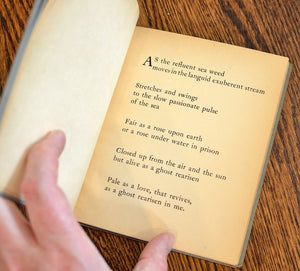 As the refluent sea weed
moves in the languid exuberent stream
Stretches and swings
to the slow passionate pulse
of the sea
Fair as a rose upon earth
or a rose under water in prison
Closed up from the air and the sun
but alive as a ghost rearisen
Pale as a love, that revives,
as a ghost rearisen in me.